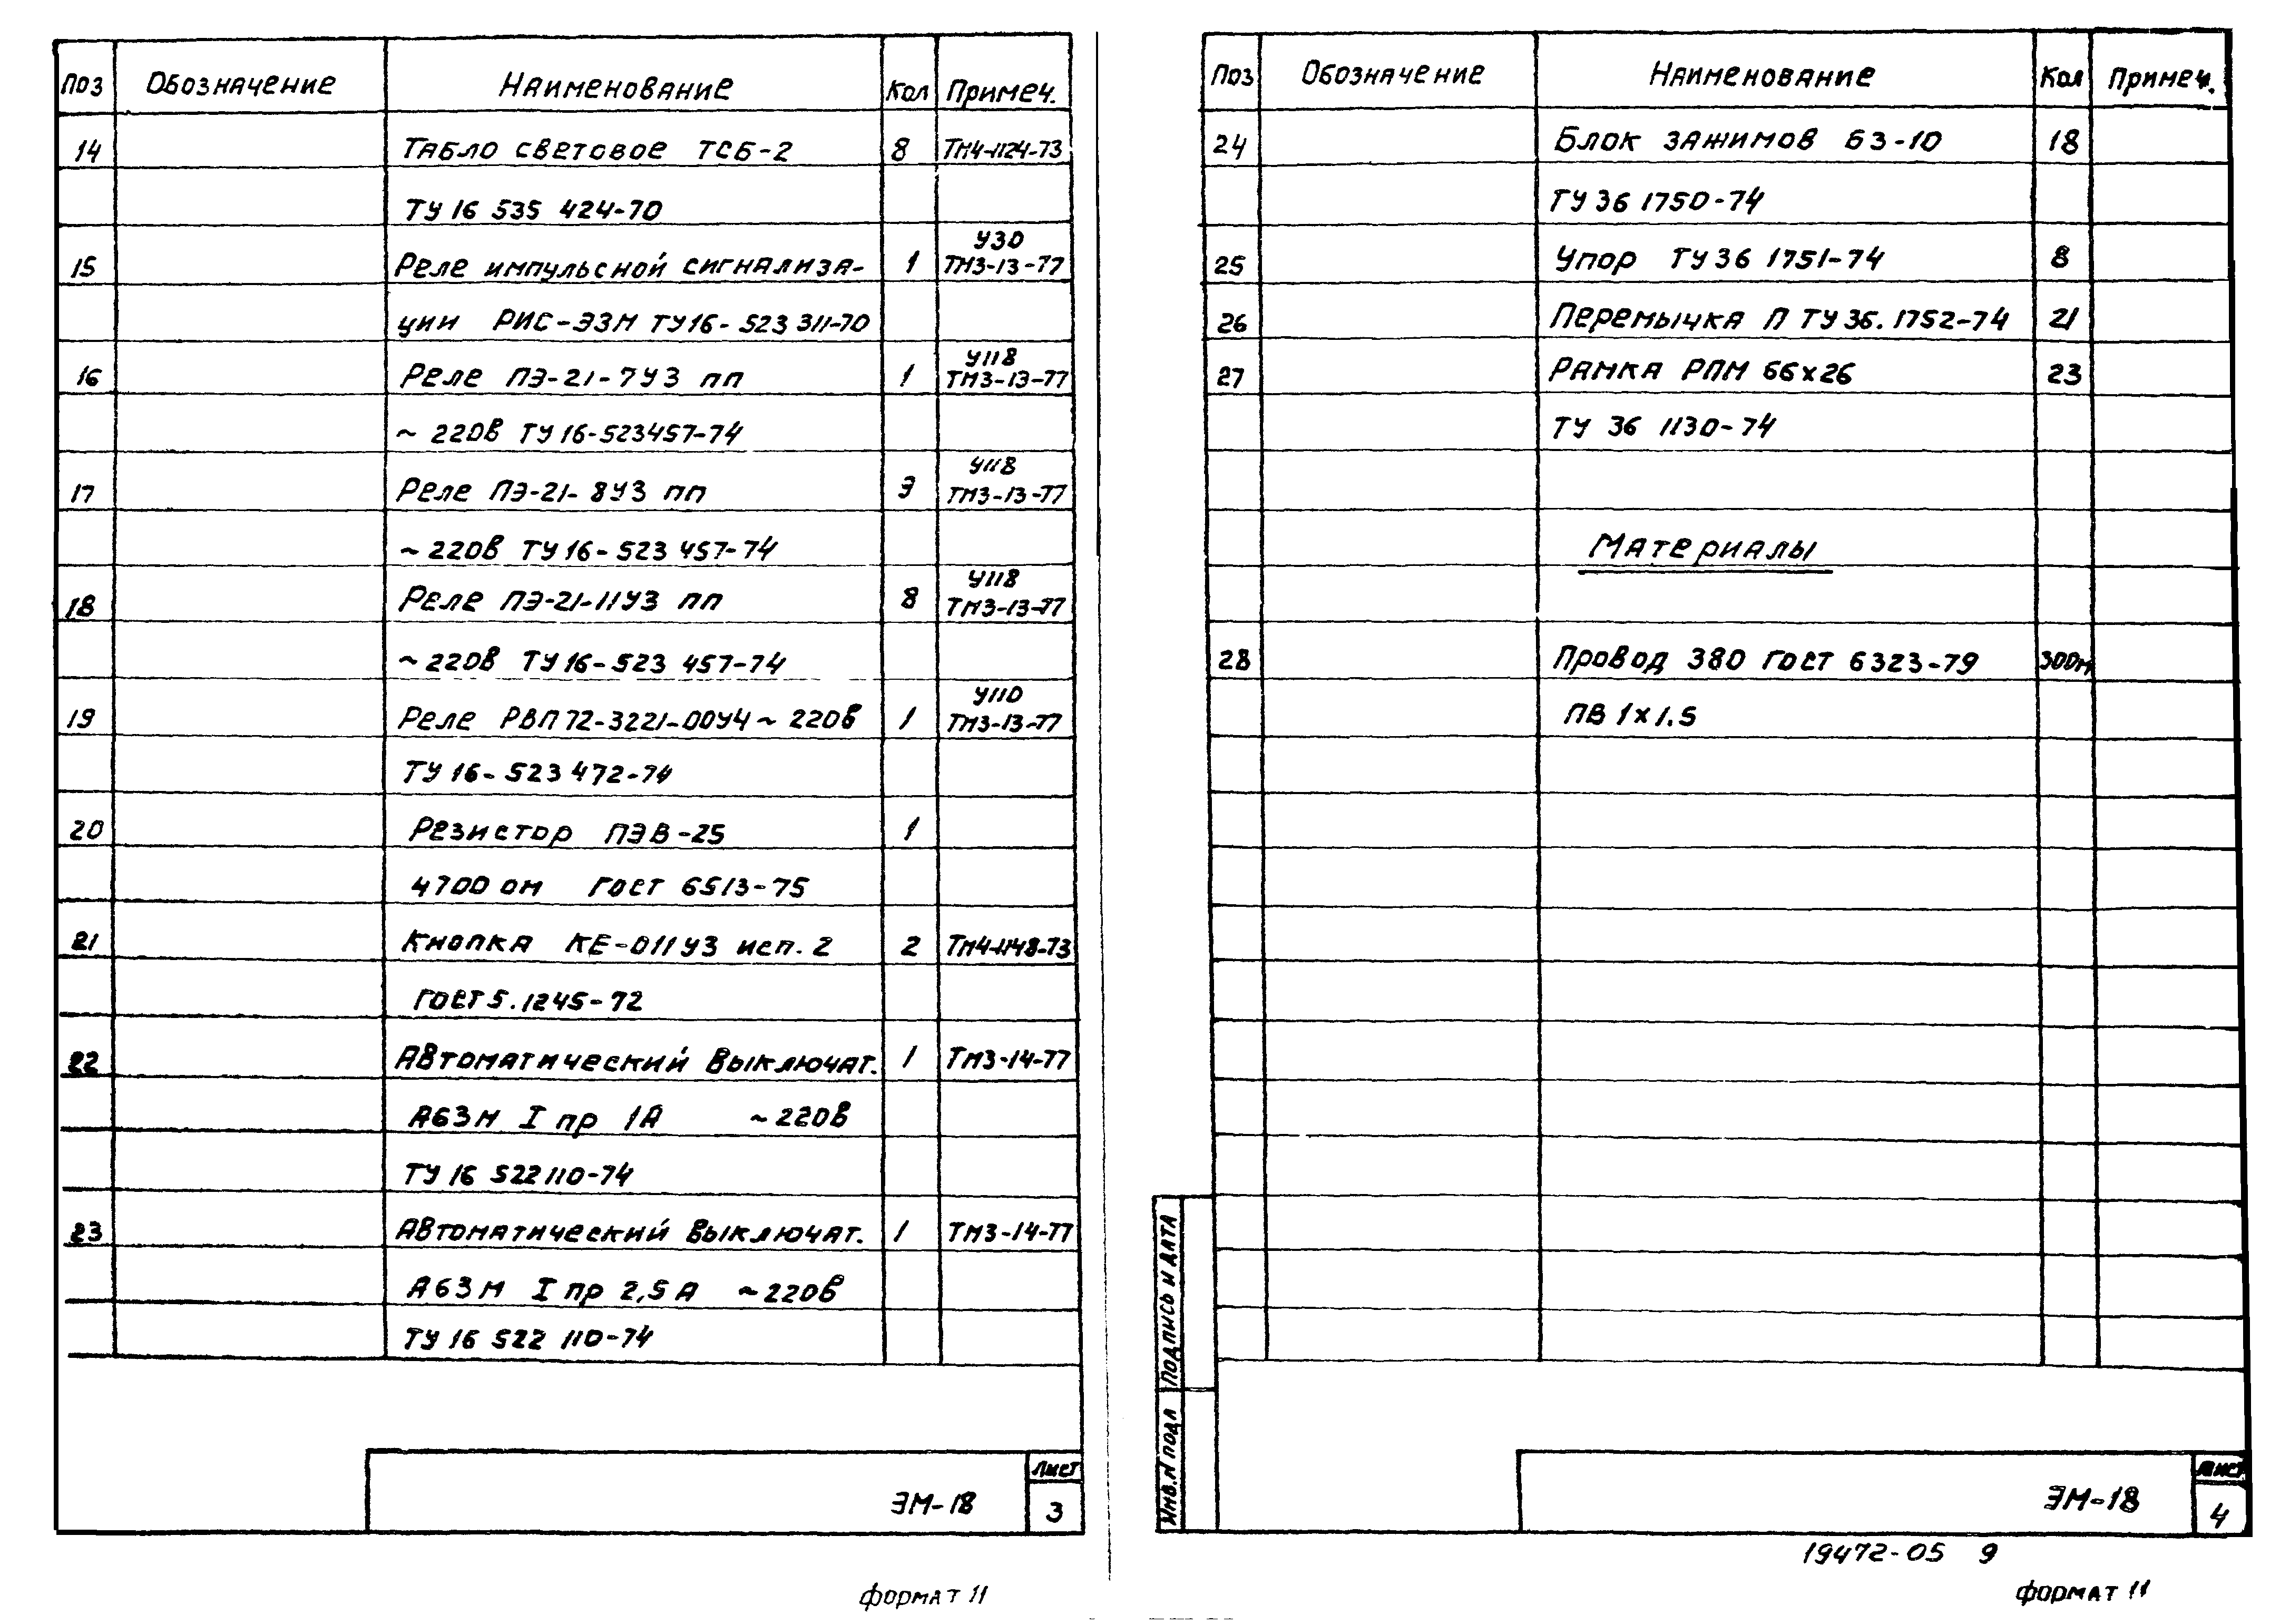 Поз Обозначение Наименование Кол Примеч.
14 Табло световое ТСБ-2 8 ТМ4-1124-73
ТУ 16 535 424-70
У30
15 Реле импульсной сигнализа- 1 ТМ3-13-77
ции РИС-Э3М ТУ16-523 311-70
У118
16 Реле ПЭ-21-7У3 пп 1 ТМ3-13-77
~ 220в ТУ 16-523457-74
У118
17 Реле ПЭ-21-8У3 пп 3 ТМ3-13-77
~ 220в ТУ 16-523 457-74
У118
18 Реле ПЭ-21-11У3 пп 8 ТМ3-13-77
~ 220в ТУ 16-523 457-74
У110
19 Реле РВП72-3221-00У4 ~ 220в 1 ТМ3-13-77
ТУ 16-523 472-74
20 Резистор ПЭВ-25 1
4700 ом ГОСТ 6513-75
21 Кнопка КЕ-011У3 исп. 2 2 ТМ4-1148-73
ГОСТ 5.1245-72
22 Автоматический выключат. 1 ТМ3-14-77
А63М I пр 1А ~220в
ТУ 16 522 110-74
23 Автоматический выключат. 1 ТМ3-14-77
А63М I пр 2,5А ~220в
ТУ 16 522 110-74
Лист
ЭМ-18 3
формат 11
Поз Обозначение Наименование Кол Примеч.
24 Блок зажимов БЗ-10 18
ТУ 36 1750-74
25 Упор ТУ 36 1751-74 8
26 Перемычка П ТУ 36.1752-74 21
27 Рамка РПМ 66х26 23
ТУ 36 1130-74
Материалы
28 Провод 380 ГОСТ 6323-79 300м
ПВ 1х1.5
Подпись и дата
Инв.N подл
Лист
ЭМ-18 4
19472-05 9
формат 11